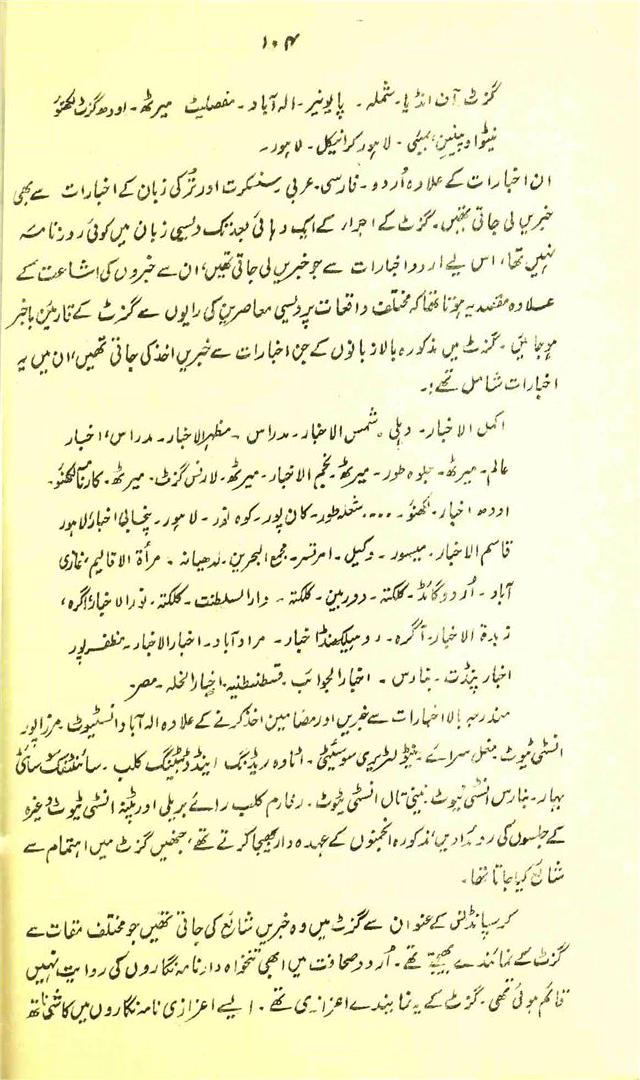 ۱۰۴
گزٹ آن انڈیا۔ شملہ۔ پایونیر۔ الہ آباد۔ مفصلیٹ میرٹھ۔ اودھ گزٹ لکھنؤ
نیٹو اوپینین، بمبئی۔ لاہور کرانیکل۔ لاہور۔
ان اخبارات کے علاوہ اُردو۔ فارسی۔ عربی سنسکرت اور تُرکی زبان کے اخبارات سے بھی
خبریں لی جاتی تھیں۔ گزٹ کے اجراء کے ایک دہائی بعد تک دیسی زبان میں کوئی روزنامہ
نہیں تھا، اس لیے اردو اخبارات سے جو خبریں لی جاتی تھیں، ان سے خبروں کی اشاعت کے
علاوہ مقصد یہ ہوتا تھا کہ مختلف واقعات پر دیسی معاصرین کی رایوں سے گزٹ کے قارئین باخبر
ہو جائیں۔ گزٹ میں مذکورہ بالا زبانوں کے جن اخبارات سے خبریں اخذ کی جاتی تھیں، ان میں یہ
اخبارات شامل تھے:۔
اکمل الاخبار۔ دہلی۔ شمس الاخبار۔ مدراس۔ مظہر الاخبار۔ مدراس، اخبار
عالم۔ میرٹھ۔ جلوہ طور۔ میرٹھ۔ نجم الاخبار۔ میرٹھ۔ لارنس گزٹ۔ میرٹھ۔ کارنامہ لکھنؤ۔
اودھ اخبار۔ لکھنؤ۔ .... شعلہ طور۔ کان پور۔ کوہ نور۔ لاہور۔ پنجابی اخبار، لاہور
قاسم الاخبار۔ میسور۔ وکیل۔ امرتسر۔ مجمع البحرین۔ لدھیانہ۔ مرأۃ الاقالیم، غازی
آباد۔ اُردو گائڈ۔ کلکتہ۔ دوربین۔ کلکتہ۔ دارالسلطنت۔ کلکتہ۔ نورالاخبار، آگرہ،
زبدۃ الاخبار۔ آگرہ۔ روہیلکھنڈ اخبار۔ مراد آباد۔ اخبارالاخبار۔ مظفرپور
اخبار پنڈت۔ بنارس۔ اخبار الجوائب۔ قسطنطنیہ، اخبار الخلہ۔ مصر۔
مندرجہ بالا اخبارات سے خبریں اور مضامین اخذ کرنے کے علاوہ الہ آباد انسٹیوٹ۔ مرزاپور
انسٹی ٹیوٹ۔ مغل سرائے۔ لٹریری سوسائیٹی۔ اٹاوہ ریڈنگ اینڈ ڈبیٹنگ کلب۔ سائنٹفک سوسائٹی
بہار۔ بنارس انسٹی ٹیوٹ۔ نینی تال انسٹی ٹیوٹ۔ رفارم کلب رائے بریلی اور پٹنہ انسٹی ٹیوٹ وغیرہ
کے جلسوں کی روئدادیں مذکورہ انجمنوں کے عہدہ دار بھیجا کرتے تھے، جنھیں گزٹ میں اہتمام سے
شائع کیا جاتا تھا۔
کرسپانڈنس کے عنوان سے گزٹ میں وہ خبریں شایع کی جاتی تھیں جو مختلف مقامات سے
گزٹ کے نمائندے بھیجتے تھے۔ اُردو صحافت میں ابھی تنخواہ دار نامہ نگاروں کی روایت نہیں
قائم ہوئی تھی۔ گزٹ کے یہ نمایندے اعزازی تھے۔ ایسے اعزازی نامہ نگاروں میں کاشی ناتھ